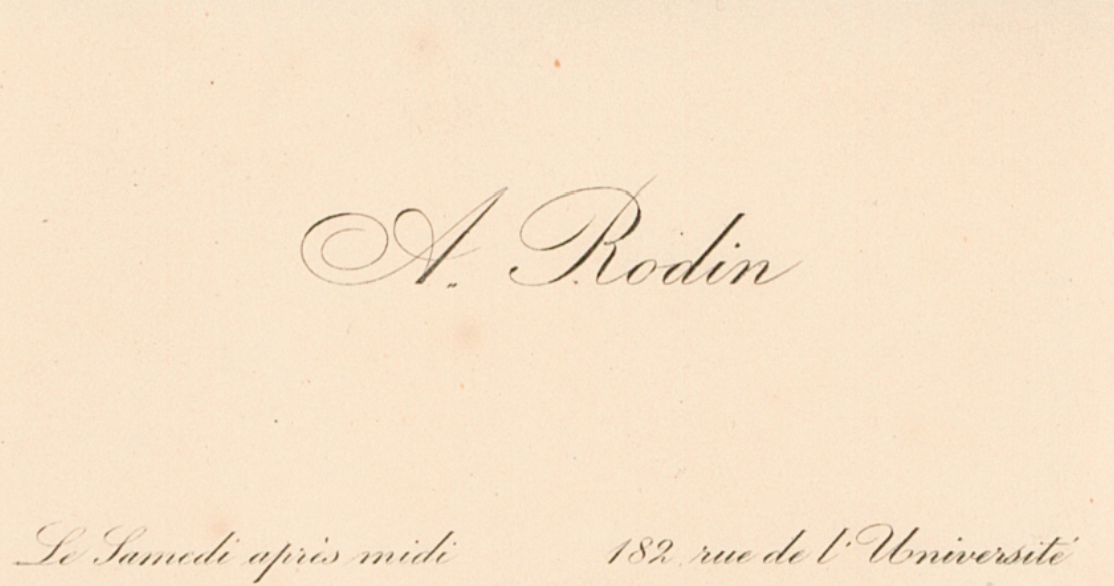 A. Rodin
Le Samedi après midi 182 rue de l'Université